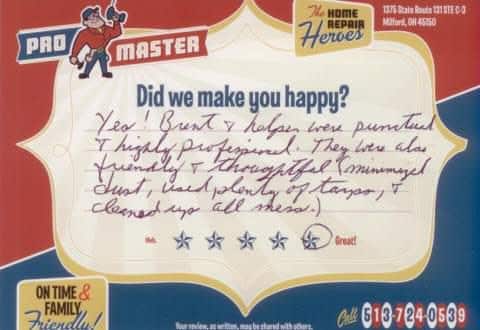 PRO MASTER
The HOME REPAIR Heroes
1375 State Route 131 STE C-3
Milford, OH 45150
Did we make you happy?
Yes! Brent & helper were punctual
& highly professional. They were also
friendly & thoughtful (minimized
dust, used plenty of tarps, &
cleaned up all mess.)
Meh. Great!
ON TIME &
FAMILY
Friendly!
Call 513-724-0539
Your review, as written, may be shared with others.